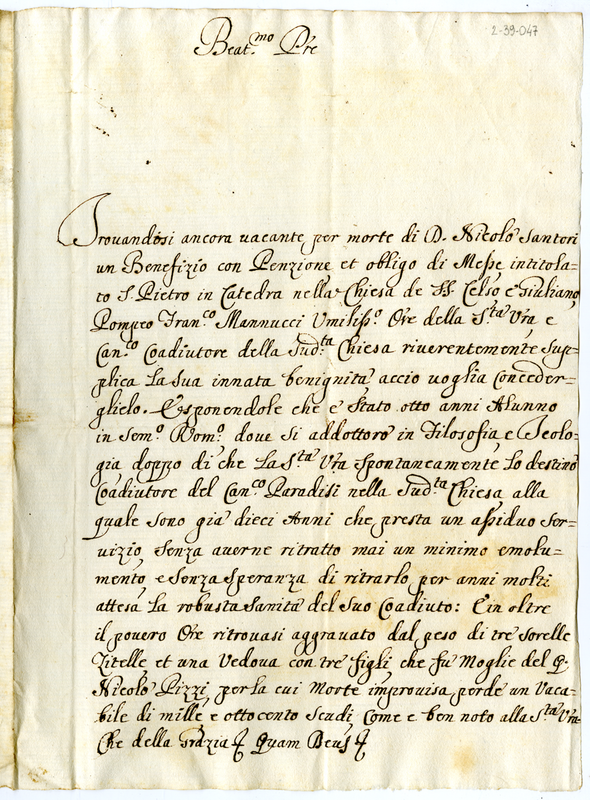 2-39-047
Beat.mo Pre
Trovandosi ancora vacante per morte di D. Nicolò Santori
un Benefizio con Penzione et obligo di Messe intitola=
to S. Pietro in Catedra nella Chiesa de SS. Celso e Giuliano
Pompeo Fran.co Mannucci Umiliss.o Ore della S.ta Vra e
Can.co Coadiutore della Sud.ta Chiesa riverentemente sup=
plica la sua innata benignità acciò voglia conceder=
glielo. Esponendole che è stato otto anni Alunno
in Sem.o Rom.o dove si addottorò in Filosofia e Teolo=
gia doppo di che la S.ta Vra spontaneamente lo destinò
Coadiutore del Can.co Paradisi nella Sud.ta Chiesa alla
quale sono già dieci Anni che presta un assiduo ser=
vizio, senza averne ritratto mai un minimo emolu=
mento, e senza speranza di ritrarlo per anni molti
attesa la robusta sanità del suo Coadiuto: E in oltre
il povero Ore ritrovasi aggravato dal peso di tre sorelle
Zitelle et una Vedova con tre figli che fu Moglie del q.
Nicolò Pizzi, per la cui Morte improvisa perdè un Vaca=
bile di mille, e ottocento scudi, come è ben noto alla S.ta Vra
Che della Grazia Quam Deus